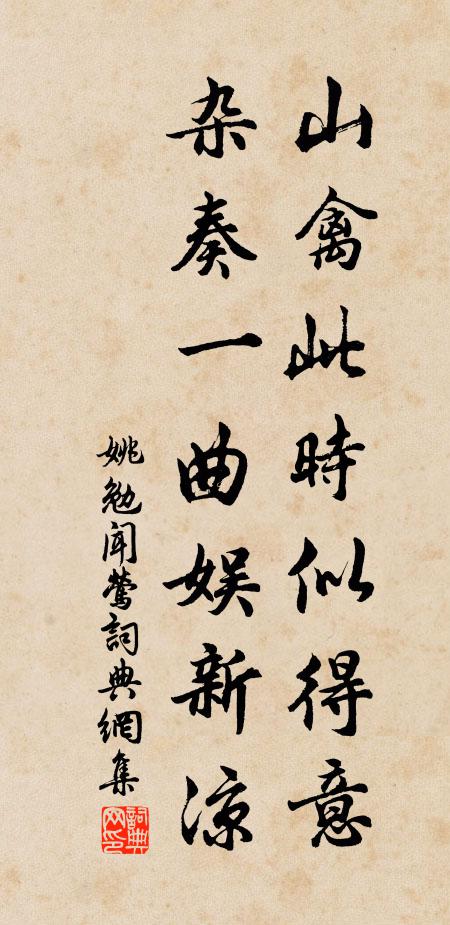 山禽此時似得意
杂奏一曲娱新凉
姚勉闻莺詞典網集
詞典网印